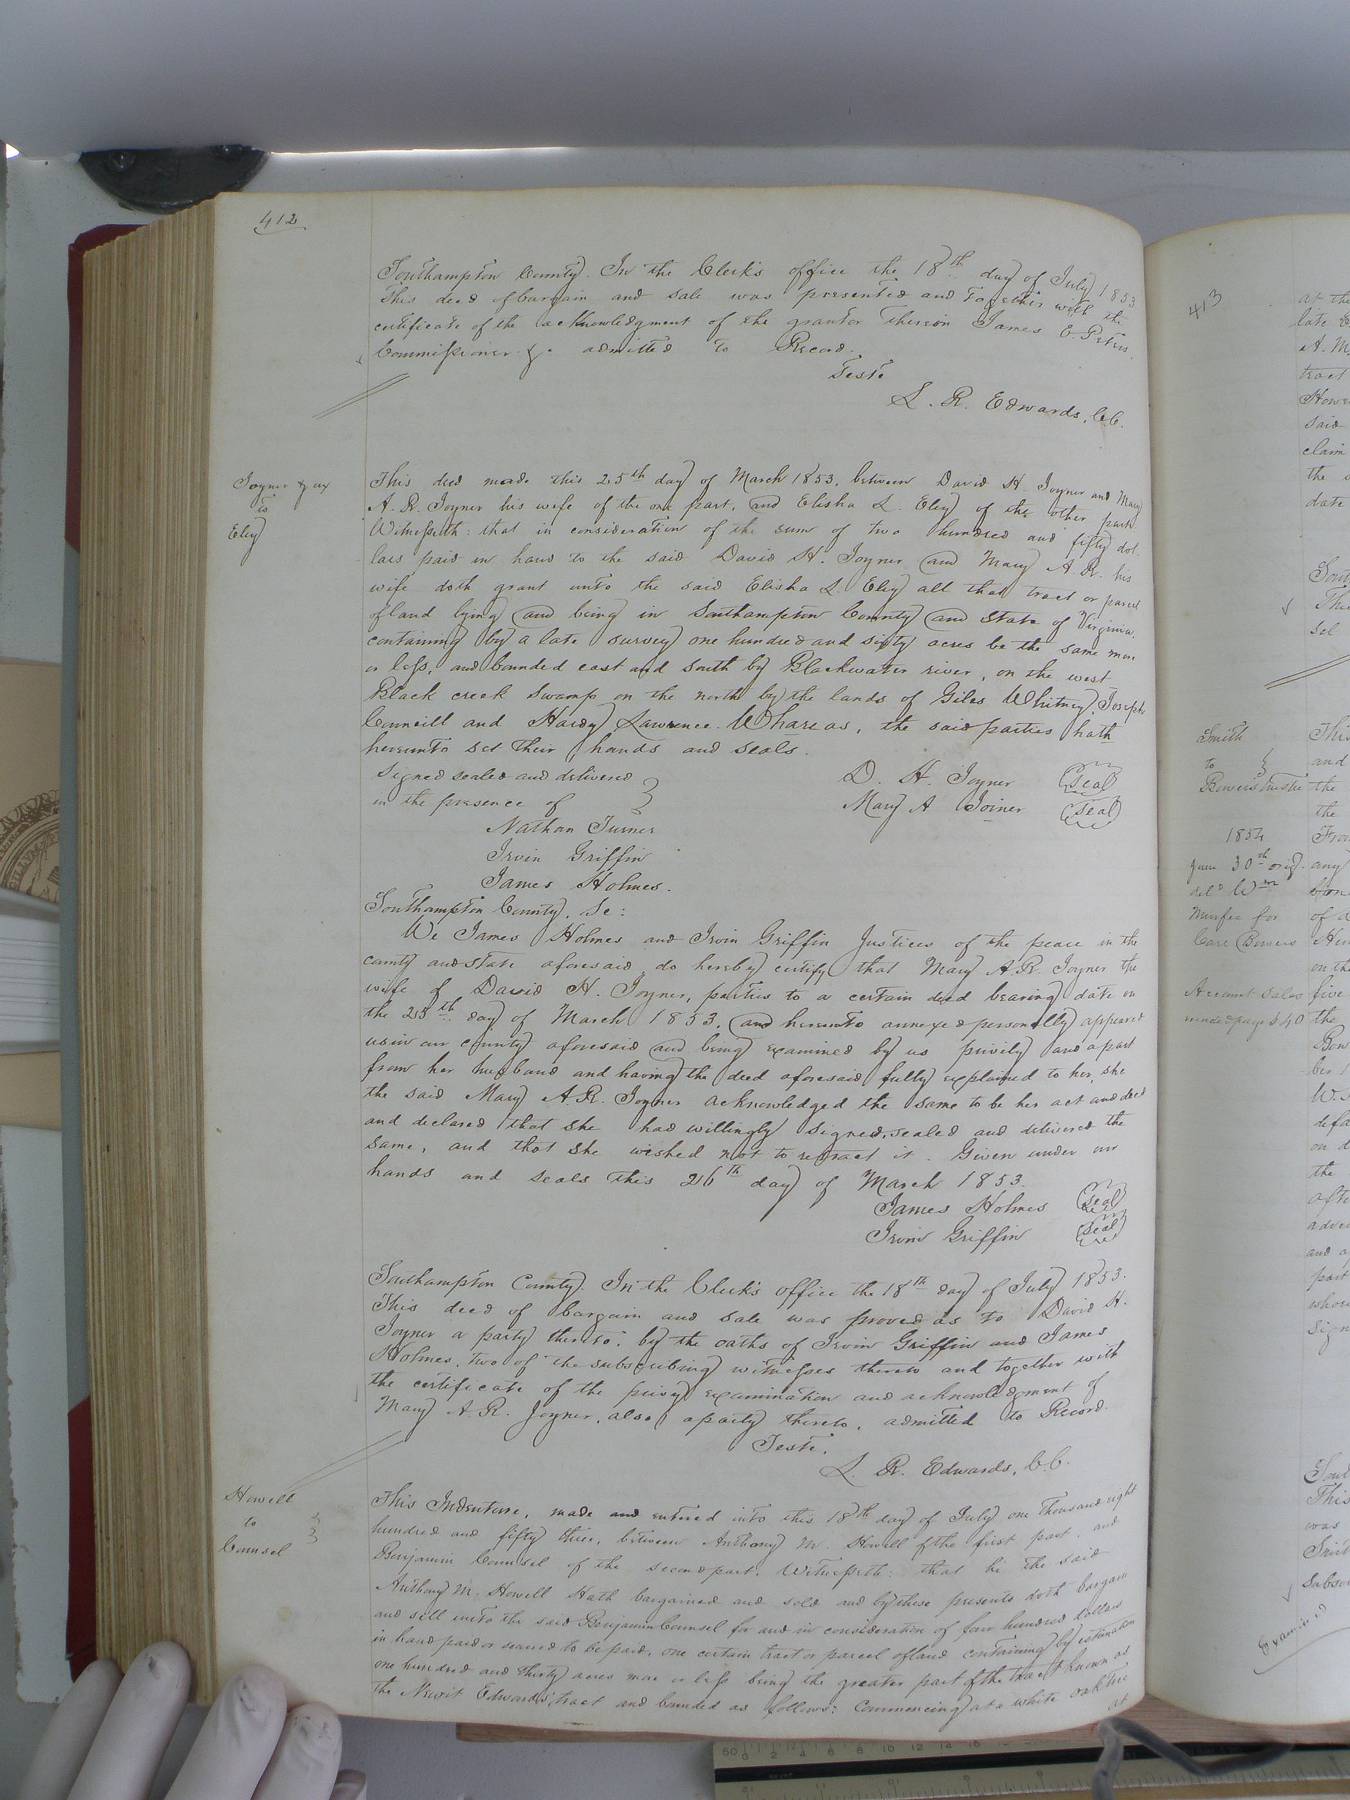 412
Southampton County. In the Clerk's office the 18th day of July 1853
This deed of bargain and sale was presented and together with the
certificate of the acknowledgment of the grantor therein James E. Peters
Commissioner &c. admitted to Record.
Teste
L. R. Edwards, C.C.
Joyner & ux
to
Eley
This deed made this 25th day of March 1853, between David H. Joyner and Mary
A. R. Joyner his wife of the one part, and Elisha L. Eley of the other part
Witnesseth: that in consideration of the sum of two hundred and fifty dol.
lars paid in hand to the said David H. Joyner and Mary A. R. his
wife doth grant unto the said Elisha L. Eley all that tract or parcel
of land lying and being in Southampton County and State of Virginia
containing by a late survey one hundred and sixty acres be the same more
or less, and bounded east and south by Blackwater river, on the west
Black creek Swamp on the north by the lands of Giles Whitney, Joseph
Councill and Hardy Lawrence. Whereas, the said parties hath
hereunto set their hands and seals.
Signed sealed and delivered
in the presence of
D. H. Joyner (Seal)
Mary A Joiner (Seal)
Nathan Turner
Irvin Griffin
James Holmes.
Southampton County. Sc:
We James Holmes and Irvin Griffin Justices of the peace in the
county and state aforesaid do hereby certify that Mary A.R. Joyner the
wife of David H. Joyner, parties to a certain deed bearing date on
the 25th day of March 1853, and hereunto annexed personally appeared
us in our county aforesaid and being examined by us privily and apart
from her husband and having the deed aforesaid fully explained to her, she
the said Mary A.R. Joyner acknowledged the same to be her act and deed
and declared that she had willingly signed, sealed and delivered the
same, and that she wished not to retract it. Given under our
hands and seals this 26th day of March 1853.
James Holmes (Seal)
Irvin Griffin (Seal)
Southampton County. In the Clerk's office the 18th day of July 1853.
This deed of bargain and sale was proved as to David H.
Joyner a party thereto, by the oaths of Irvin Griffin and James
Holmes, two of the subscribing witnesses thereto and together with
the certificate of the privy examination and acknowledgment of
Mary A.R. Joyner, also a party thereto, admitted to Record.
Teste.
L. R. Edwards, C.C.
Howell
to
Counsel
This Indenture, made and entered into this 18th day of July one thousand eight
hundred and fifty three, between Anthony M. Howell of the first part, and
Benjamin Counsel of the second part. Witnesseth: that he the said
Anthony M. Howell Hath bargained and sold and by these presents doth bargain
and sell unto the said Benjamin Counsel for and in consideration of four hundred dollars
in hand paid or secured to be paid, one certain tract or parcel of land containing by estimation
one hundred and thirty acres more or less being the greater part of the tract known as
the Newit Edwards tract and bounded as follows: Commencing at a white oak tree
at
413
at the
late
A. M
tract
Howe
said
claim
the
date
Sout
The
Sel
Smith
to
Bowers trustee
1854
June 30th orig.
del'd Wm
for
Carr Bowers
Account Sales
page 540
This
and
the
the
From
any
of
on the
five
the
Bow
W.
defa
on d
the
afte
adver
and a
part
whose
Sign
Sout
This
was
Subsc
Examined